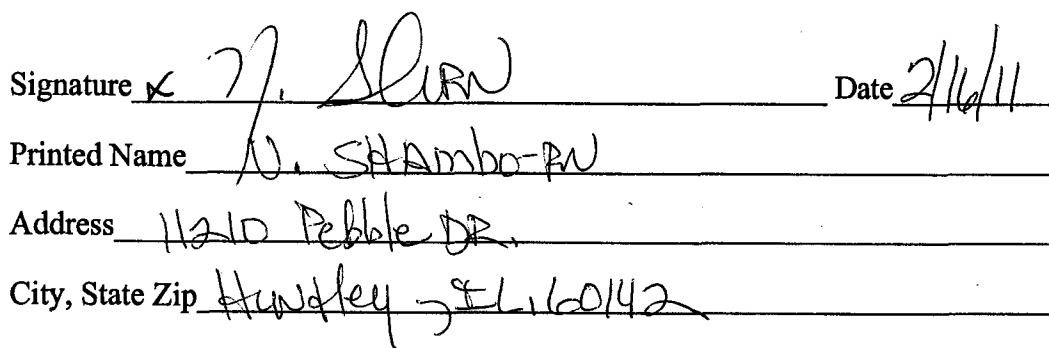 Signature x N. S RN Date 2/16/11
Printed Name N. SHAmbo-RN
Address 11210 Pebble DR.
City, State Zip Huntley, IL, 60142